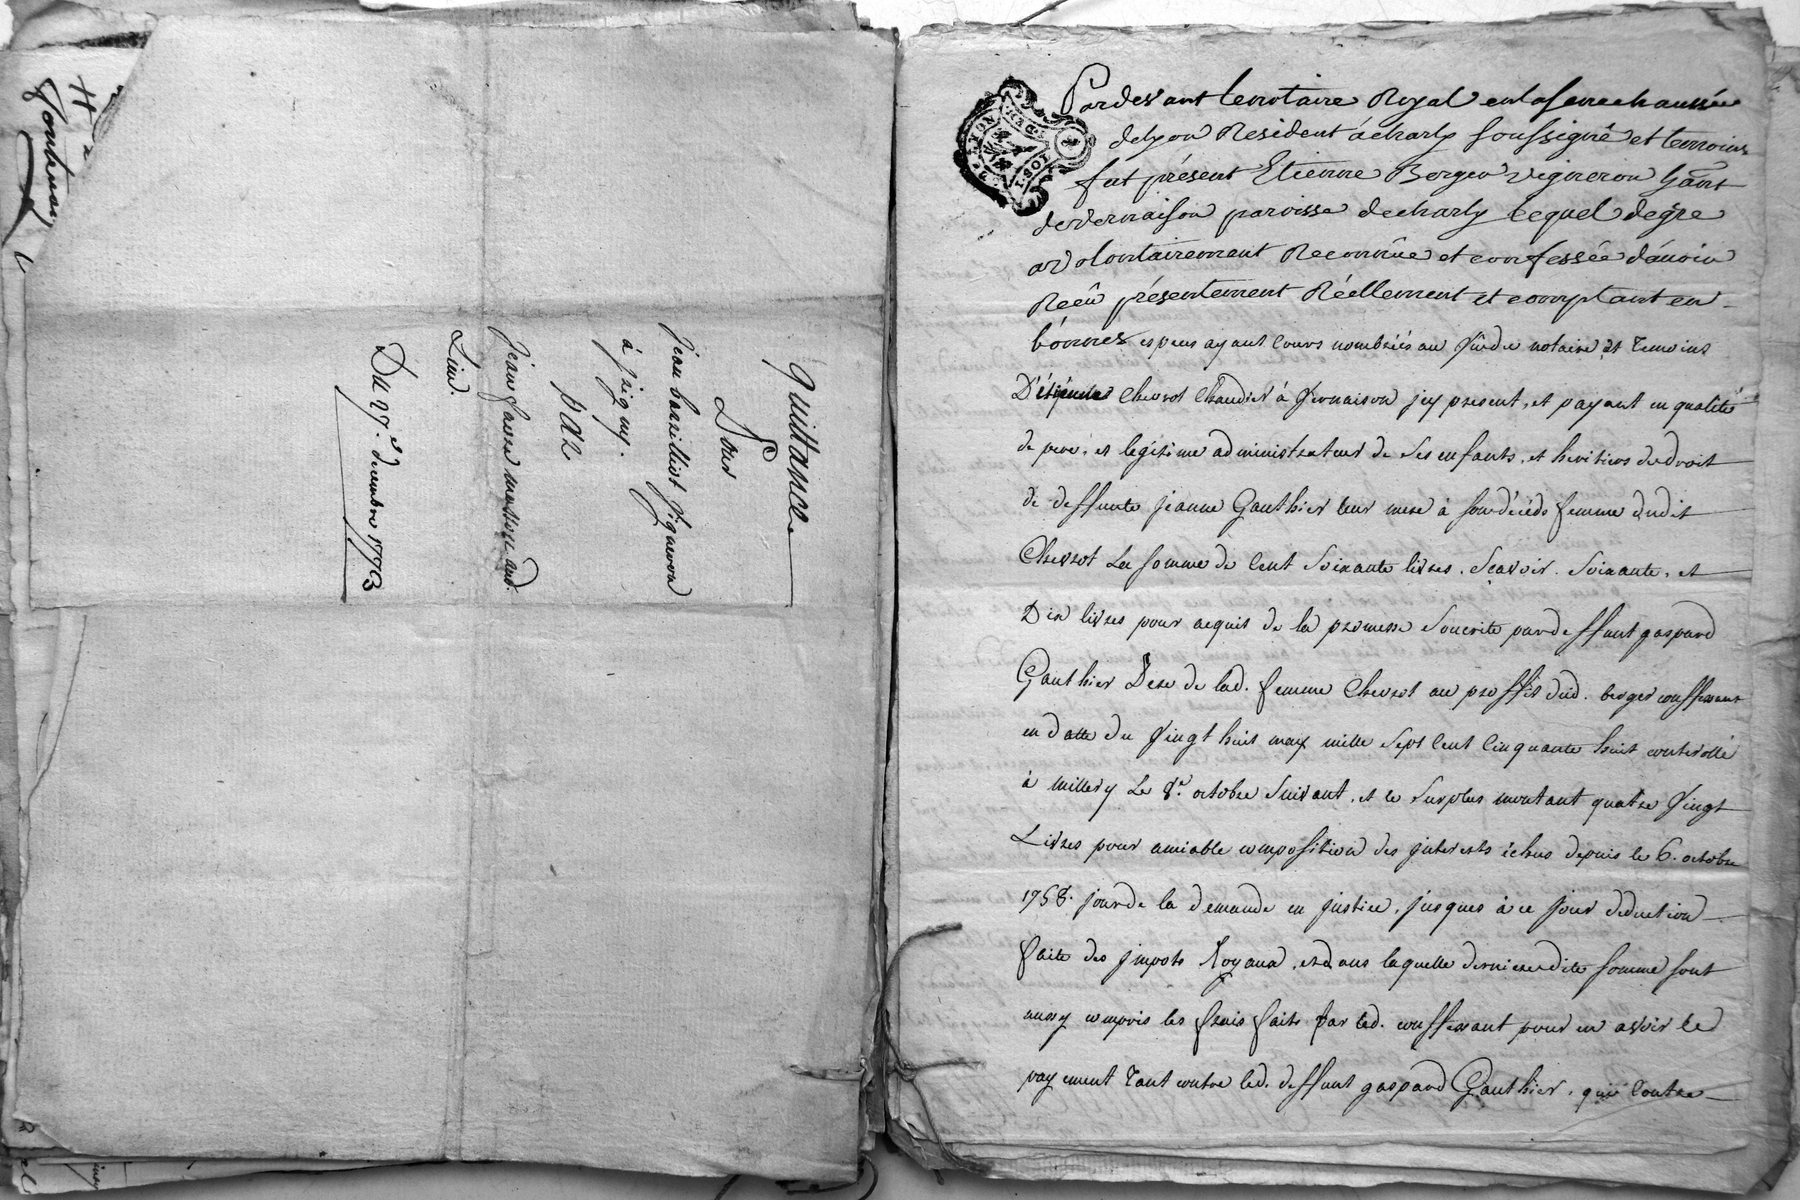 quittance
Pour
jean bazilliot Vigneron
à jrigny.
par
jean faure
Du 27.e decembre 1773
Pardevant le notaire Royal en la senechaussée
de lyon Resident à charly soussigné et temoins
fut présent Etienne Berger vigneron
de vernaison paroisse de charly lequel de gré
a volontairement Reconnûe et confessée d'auoir
Reçû présentement Réellement et comptant en
bonnes especes ayant cours nombrées au Vû de notaire et Temoins
Chevrot Chandier à Vernaison jcy present, et payant en qualité
de pere, et legitime administrateur de Ses enfants, et heritiers de droit
de deffunte jeanne Gauthier leur mere à son décéds femme dudit
Chevrot La somme de Cent Soixante livres, Sçavoir. Soixante, et
Dix livres pour acquit de la promesse Souscrite par deffunt gaspard
Gauthier Pere de lad. femme Chevrot au proffit dud. berger confessant
en datte du Vingt huit may mille Sept Cent Cinquante huit controllé
à millery Le 8.e octobre Suivant, et le Surplus montant quatre Vingt
Livres pour amiable composition des jnterests échus depuis le 6. octobre
1758. jour de la demande en justice, jusques à ce jour deduction
faite des jmpots Royaux, et dans laquelle derniere dite somme sont
aussy compris les frais faits par led. confessant pour en avoir le
payement Tant contre led. deffunt gaspard Gauthier, que Contre